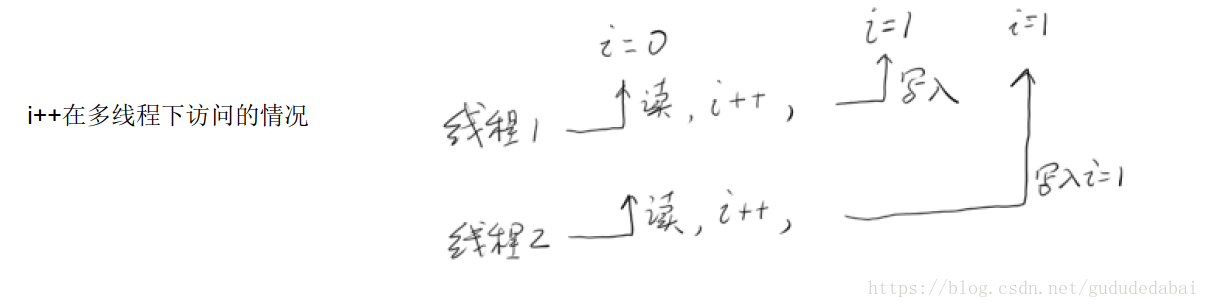 i=0
i=1
i=1
i++在多线程下访问的情况
线程1 读, i++, 写入
写入i=1
线程2 读, i++,
https://blog.csdn.net/gududedabai